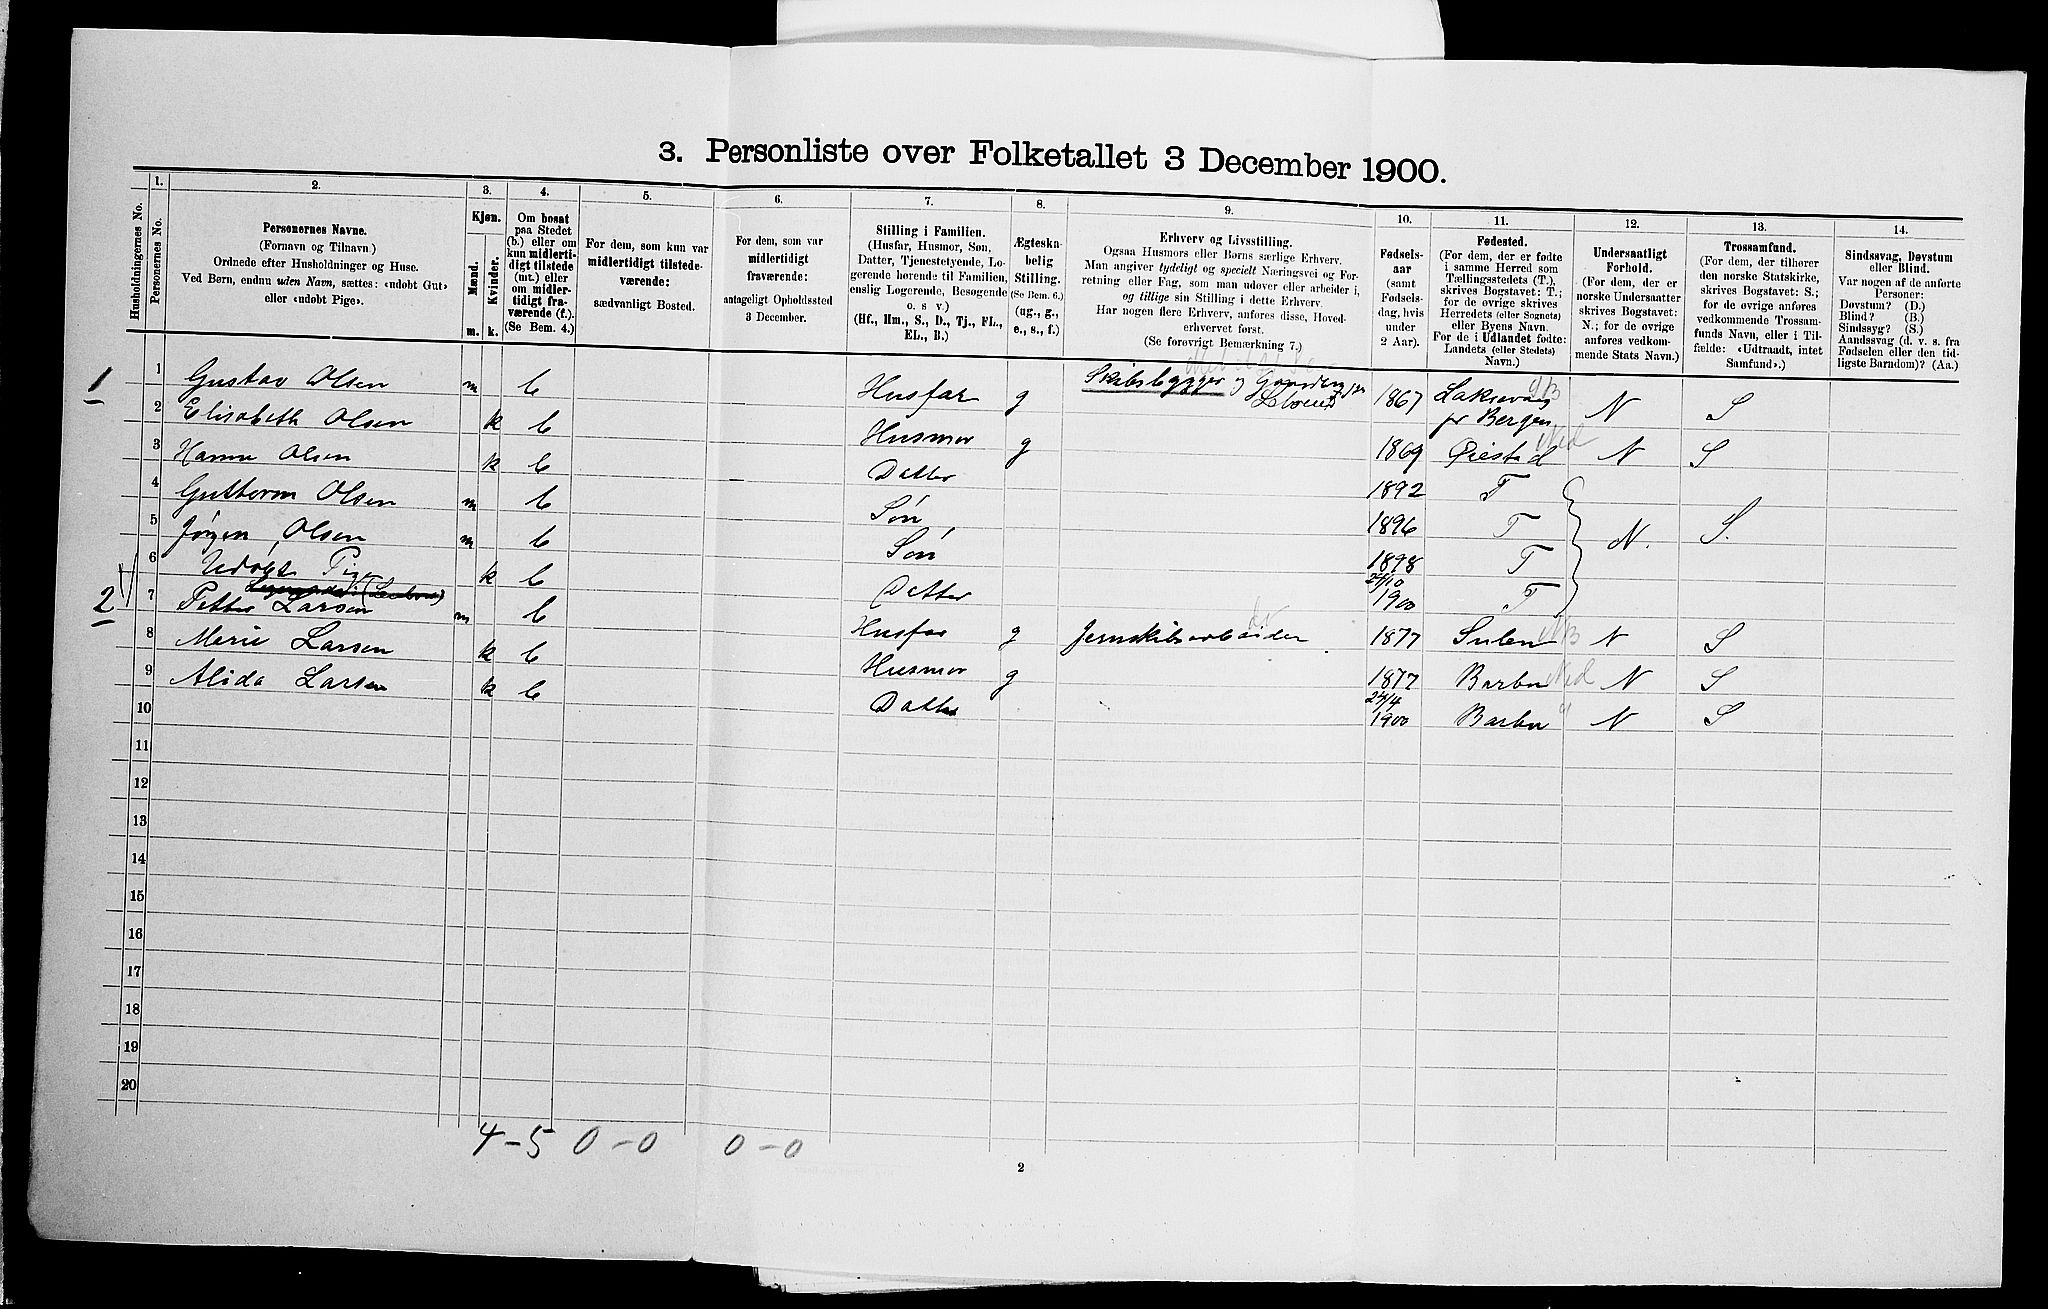 3. Personliste over Folketallet 3 December 1900.
Husholdningernes No.
1.
Personernes No.
2.
Personernes Navne.
(Fornavn og Tilnavn.)
Ordnede efter Husholdninger og Huse.
Ved Børn, endnu uden Navn, sættes: «udøbt Gut»
eller «udøbt Pige».
3.
Kjøn.
Mænd.
Kvinder.
m. k.
4.
Om bosat
paa Stedet
(b.) eller om
kun midlerti-
digt tilstede
(mt.) eller
om midler-
tidigt fra-
værende (f.).
(Se Bem. 4.)
5.
For dem, som kun var
midlertidigt tilstede-
værende:
sædvanligt Bosted.
6.
For dem, som var
midlertidigt
fraværende:
antageligt Opholdssted
3 December.
7.
Stilling i Familien.
(Husfar, Husmor, Søn,
Datter, Tjenestetyende, Lo-
gerende hørende til Familien,
enslig Logerende, Besøgende
o. s v.)
(Hf., Hm., S., D., Tj., FL.,
EL., B.)
8.
Ægteska-
belig
Stilling.
(Se Bem. 6.)
(ug., g.,
e., s., f.)
9.
Erhverv og Livsstilling.
Ogsaa Husmors eller Børns særlige Erhverv.
Man angiver tydeligt og specielt Næringsvei og For-
retning eller Fag, som man udøver eller arbeider i,
og tillige sin Stilling i dette Erhverv.
Har nogen flere Erhverv, anføres disse, Hoved-
erhvervet først.
(Se forøvrigt Bemærkning 7.)
10.
Fødsels-
aar
(samt
Fødsels-
dag, hvis
under
2 Aar).
11.
Fødested.
(For dem, der er fødte
i samme Herred som
Tællingsstedets (T.),
skrives Bogstavet: T.;
for de øvrige skrives
Herredets (eller Sognets)
eller Byens Navn.
For de i Udlandet fødte:
Landets (eller Stedets)
Navn.)
12.
Undersaatligt
Forhold.
(For dem, der er
norske Undersaatter
skrives Bogstavet:
N.; for de øvrige
anføres vedkom-
mende Stats Navn.)
13.
Trossamfund.
(For dem, der tilhører
den norske Statskirke,
skrives Bogstavet: S.;
for de øvrige anføres
vedkommende Trossam-
funds Navn, eller i Til-
fælde: «Udtraadt, intet
Samfund».)
14.
Sindssvag, Døvstum
eller Blind.
Var nogen af de anførte
Personer:
Døvstum? (D.)
Blind? (B.)
Sindssyg? (S.)
Aandssvag (d. v. s. fra
Fødselen eller den tid-
ligste Barndom)? (Aa.)
1 1 Gustav Olsen m b Husfar g Skibsbygger og 1867 Laksevaag pr Bergen N S
2 Elisabeth Olsen k b Husmor g 1869 Øiestad N S
3 Hanna Olsen k b Datter 1892 T
4 Guttorm Olsen m b Søn 1896 T N. S.
5 Jørgen Olsen m b Søn 1898 T
6 Udøbt Pige k b Datter 25/10 1900 T
2 7 Petter Larsen m b Husfar g Jernskibsarbeider 1877 Sulen N S
8 Marie Larsen k b Husmor g 1877 Barbu N S
9 Alida Larsen k b Datter 24/4 1900 Barbu N S
10
11
12
13
14
15
16
17
18
19
20
4-5 0-0 0-0
2